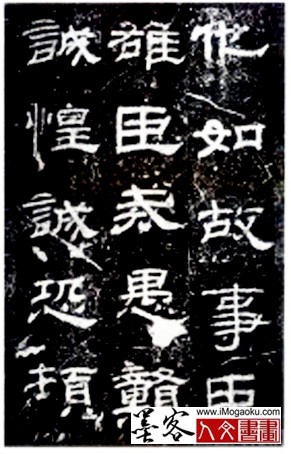 他如故事臣
雄臣戒愚戇
誠惶誠恐頓
www.iMogaoku.com
墨客 人文書畫